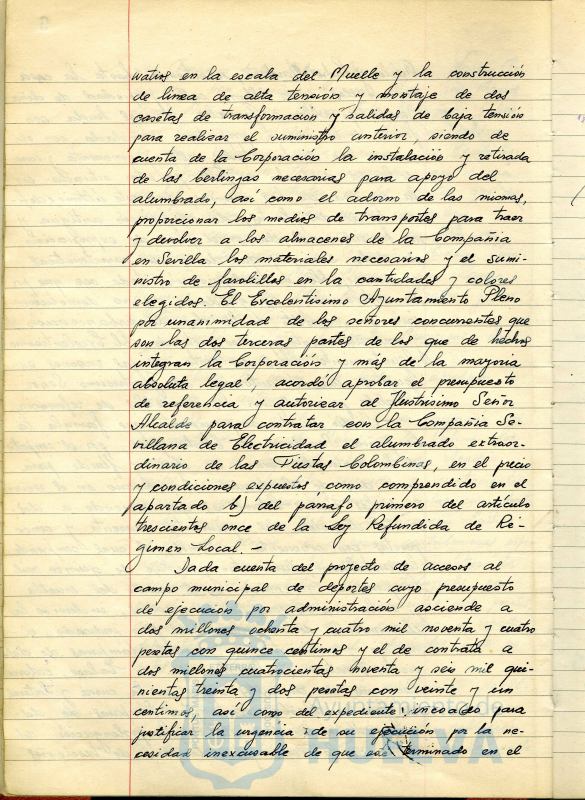 watios en la escala del Muelle y la construcción
de linea de alta tensión y montaje de dos
casetas de transformación y salidas de baja tensión
para realizar el suministro anterior, siendo de
cuenta de la Corporación la instalación y retirada
de las berlingas necesarias para apoyo del
alumbrado, asi como el adorno de las mismas,
proporcionar los medios de transportes para traer
y devolver a los almacenes de la Compañia
en Sevilla los materiales necesarios y el sumi-
nistro de farolillos en la cantidades y colores
elegidos. El Excelentisimo Ayuntamiento Pleno
por unanimidad de los señores concurrentes que
son las dos terceras partes de los que de hechos
integran la Corporación y más de la mayoria
absoluta legal, acordó aprobar el presupuesto
de referencia y autorizar al Ilustrisimo Señor
Alcalde para contratar con la Compañia Se-
villana de Electricidad el alumbrado extraor-
dinario de las Fiestas Colombinas, en el precio
y condiciones expuestos como comprendido en el
apartado b) del párrafo primero del articulo
trescientos once de la Ley Refundida de Ré-
gimen Local. -
Dada cuenta del proyecto de accesos al
campo municipal de deportes cuyo presupuesto
de ejecución por administración asciende a
dos millones ochenta y cuatro mil noventa y cuatro
pesetas con quince centimos y el de contrata a
dos millones cuatrocientas noventa y seis mil qui-
nientas treinta y dos pesetas con veinte y un
centimos, asi como del expediente incoado para
justificar la urgencia de su ejecución por la ne-
cesidad inexcusable de que esté terminado en el